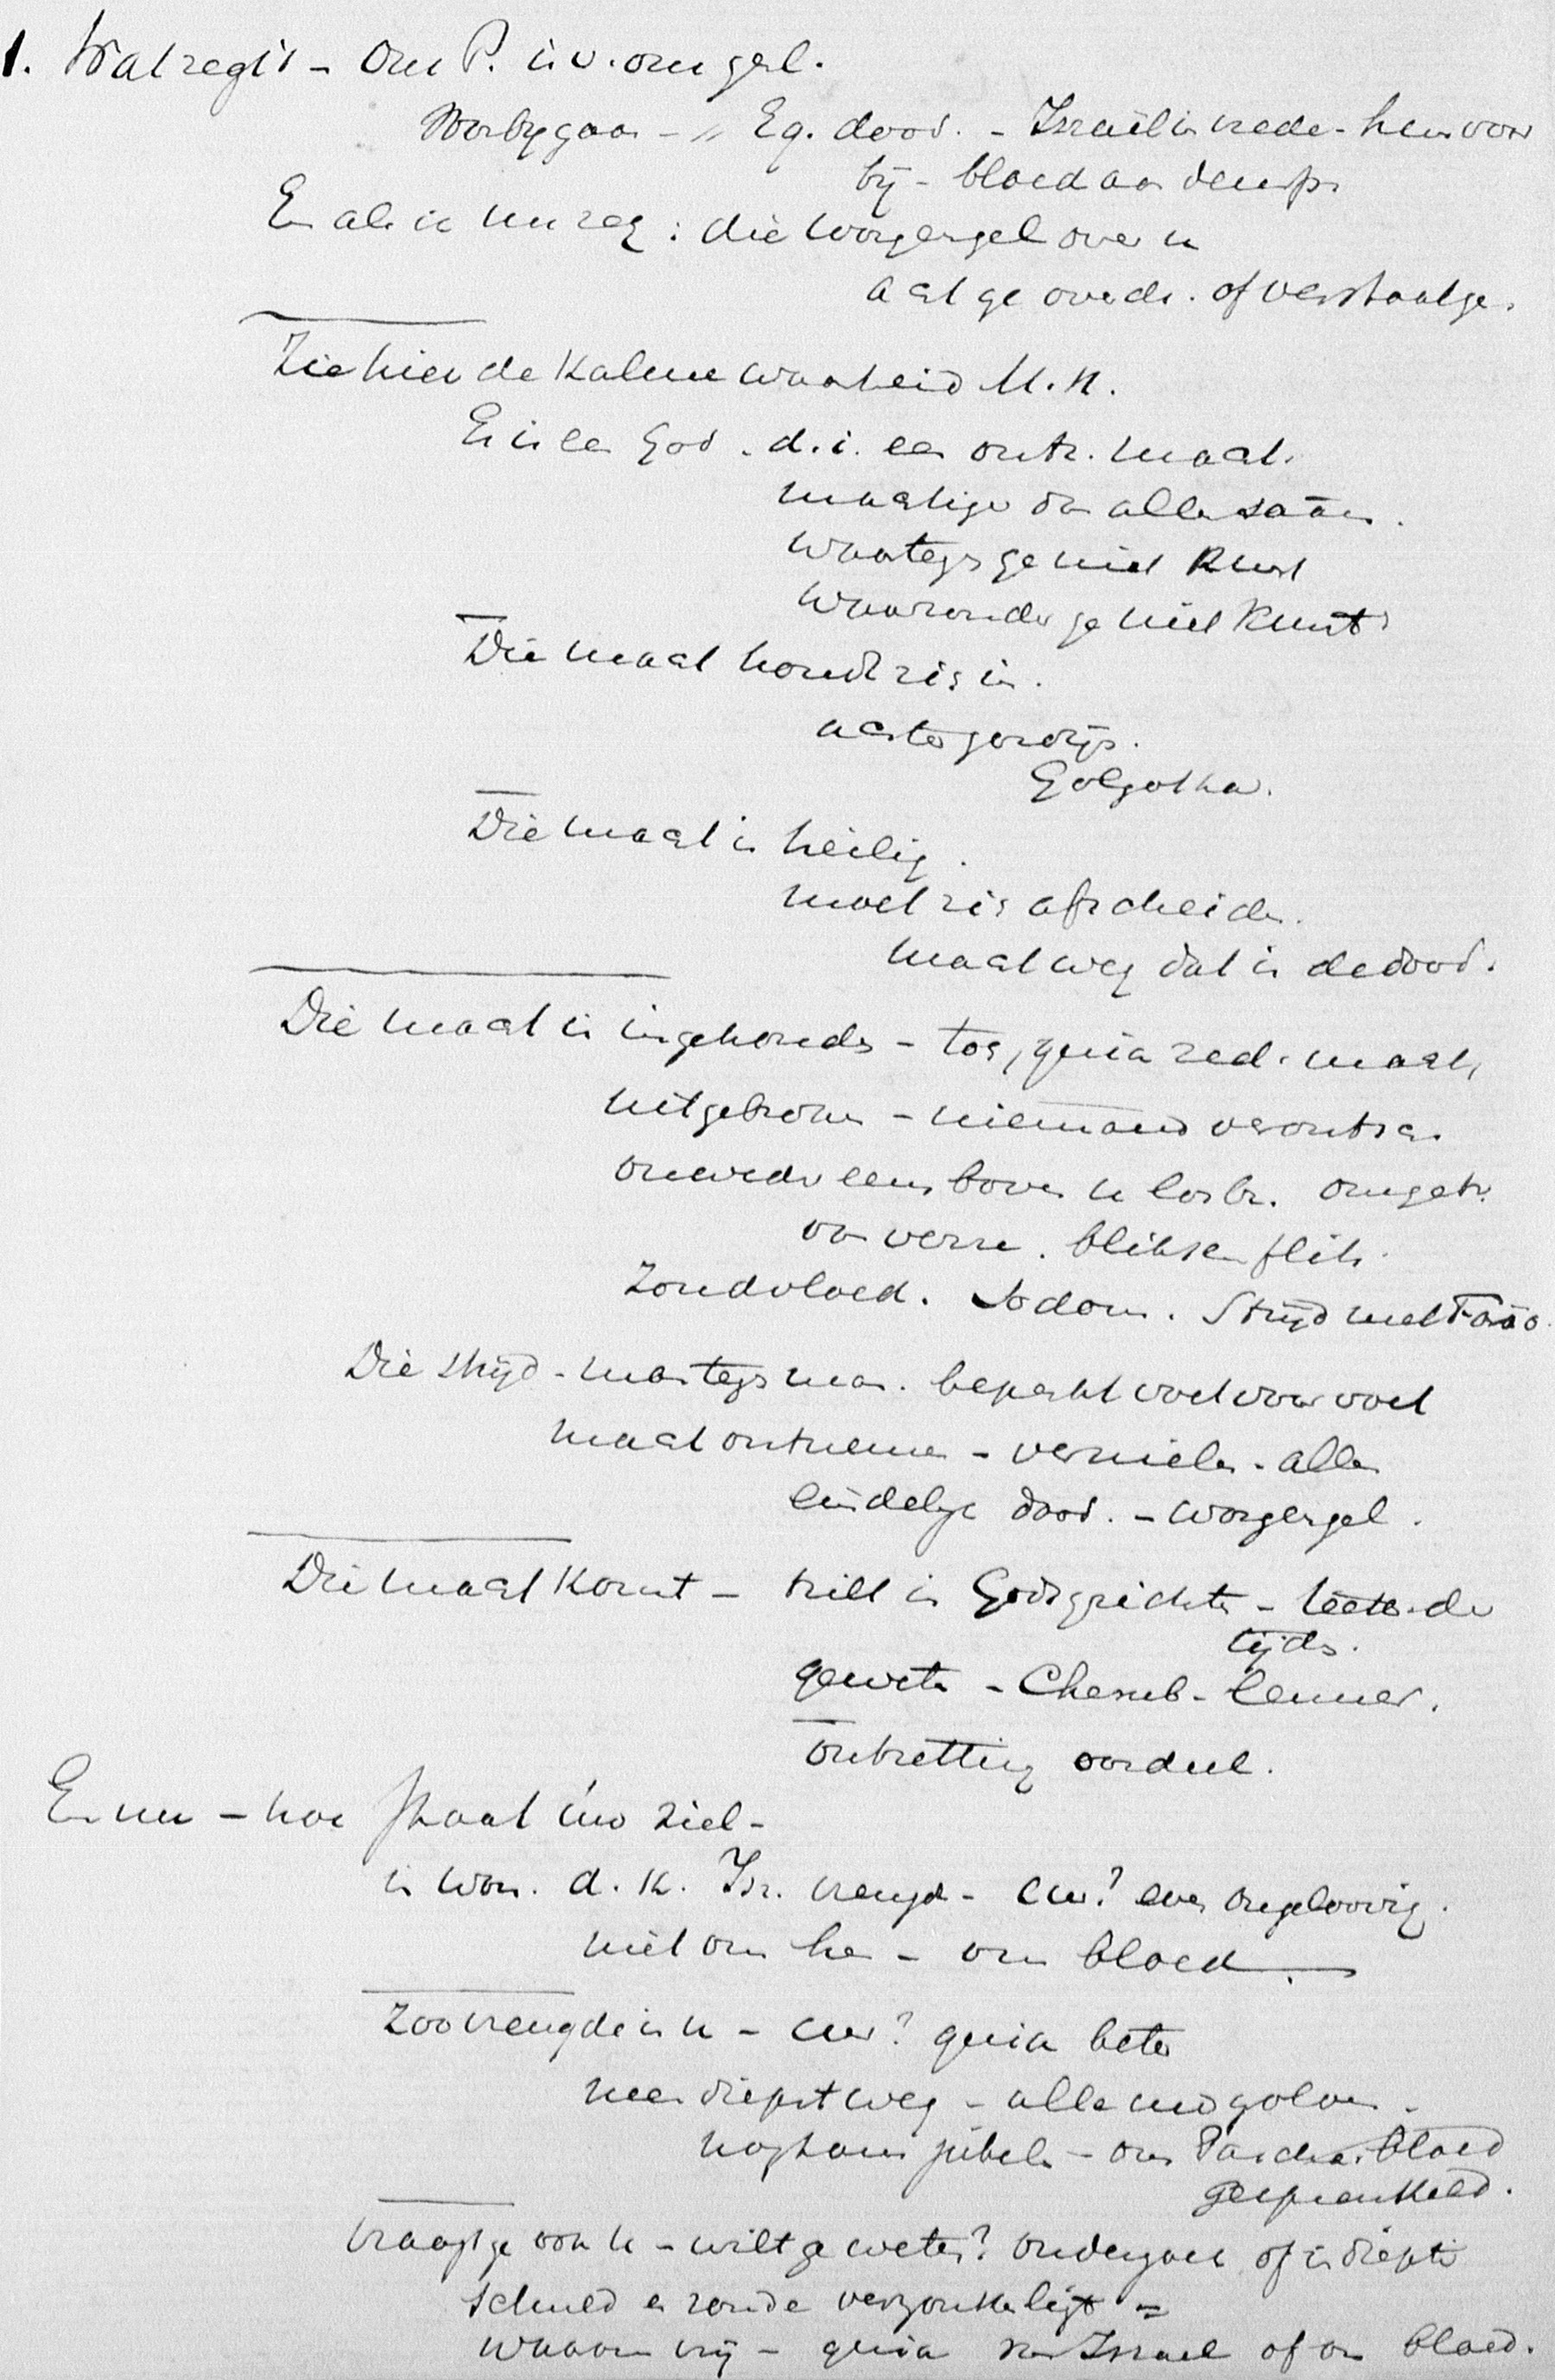 1. Wat zegt 't - Ons P. is v. ons gesl.
Voorbijgaan - " Eg. dood. - Israël in vrede - hen voor
bij - bloed aan deurp.
En als ik nu zeg: die worgengel over u
acht ge overdr. of verstaat ge.
Zie hier de kalme waarheid M. H.
Er is een God. d. i. een ontz. macht.
machtiger dan alle saâm.
waartegen ge niet kunt
waaronder ge niet kunt
Die macht houdt zich in.
achter gordijn.
Golgotha.
Die macht is heilig.
moet zich afscheiden.
macht weg dat is de dood.
Die macht is ingehouden - toch, quia zed. macht,
uitgebroken - niemand verontsch.
onweder eens boven u losbr. omgetr.
van verre. bliksemflits.
Zondvloed. Sodom. Strijd met Faräo.
Die strijd - macht tegen mach. beperkt voet voor voet
macht ontnemen - vernielen - allen
eindelijk dood. - worgengel.
Die macht komt - trilt in Godsgerichten - der
tijden.
geweten - Cherub - lemmer.
ontzetting oordeel.
En nu - hoe staat uw ziel -
in won. d. K. Isr. vreugd - cur? even ongeloovig.
niet om hen - om bloed.
Zoo vreugde in u - cur? quia beter
neen diepst weg - alle uw golven -
nogtans jubelen - ons Pascha. bloed
gesprenkeld.
Vraagt ge ook u - wilt ge weten? ondergaat of in diepte
schuld en zonde verzonken ligt =
waarom vrij - quia van Israel of om bloed.